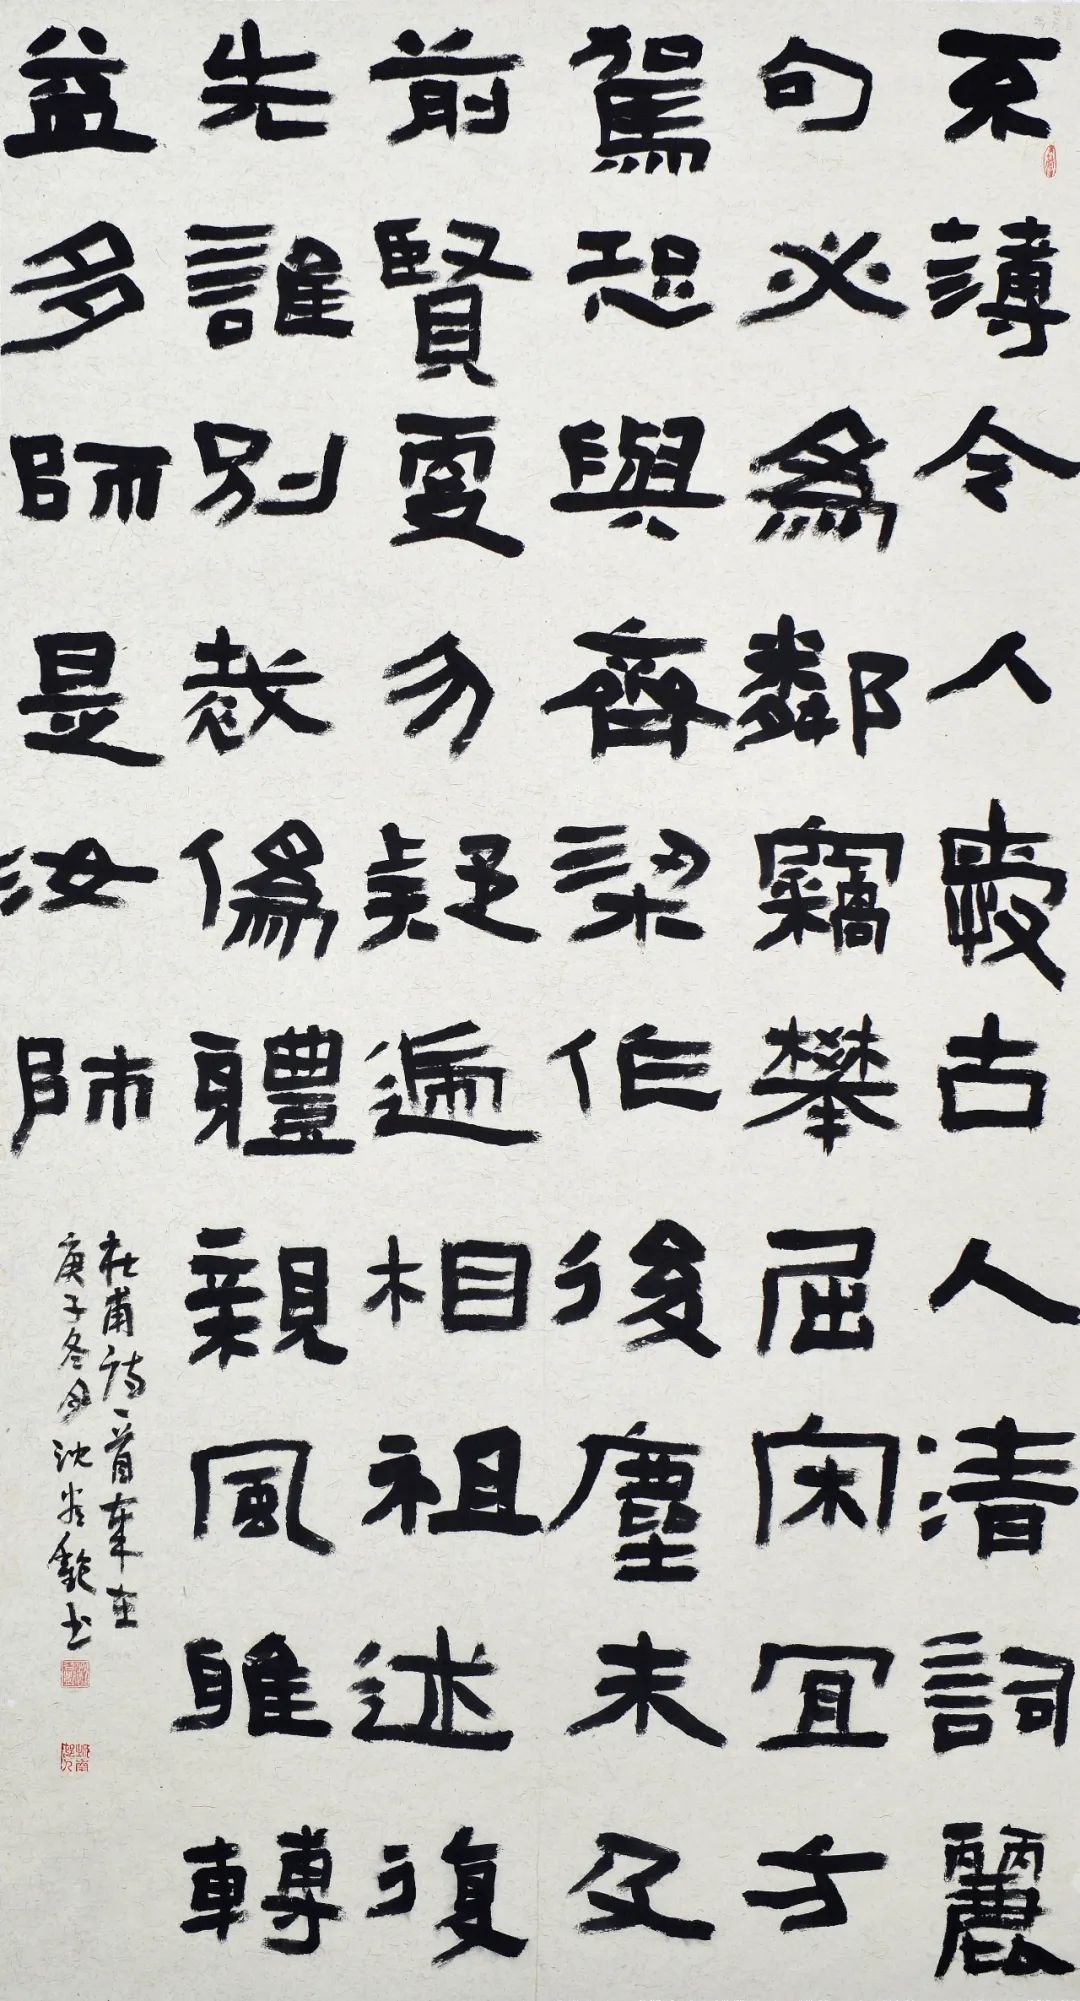 不薄今人愛古人清詞麗
句必爲鄰竊攀屈宋宜方
駕恐與齊梁作後塵未及
前賢更勿疑遞相祖述復
先誰別裁僞體親風雅轉
益多師是汝師
杜甫詩一首歲在
庚子冬月沈書